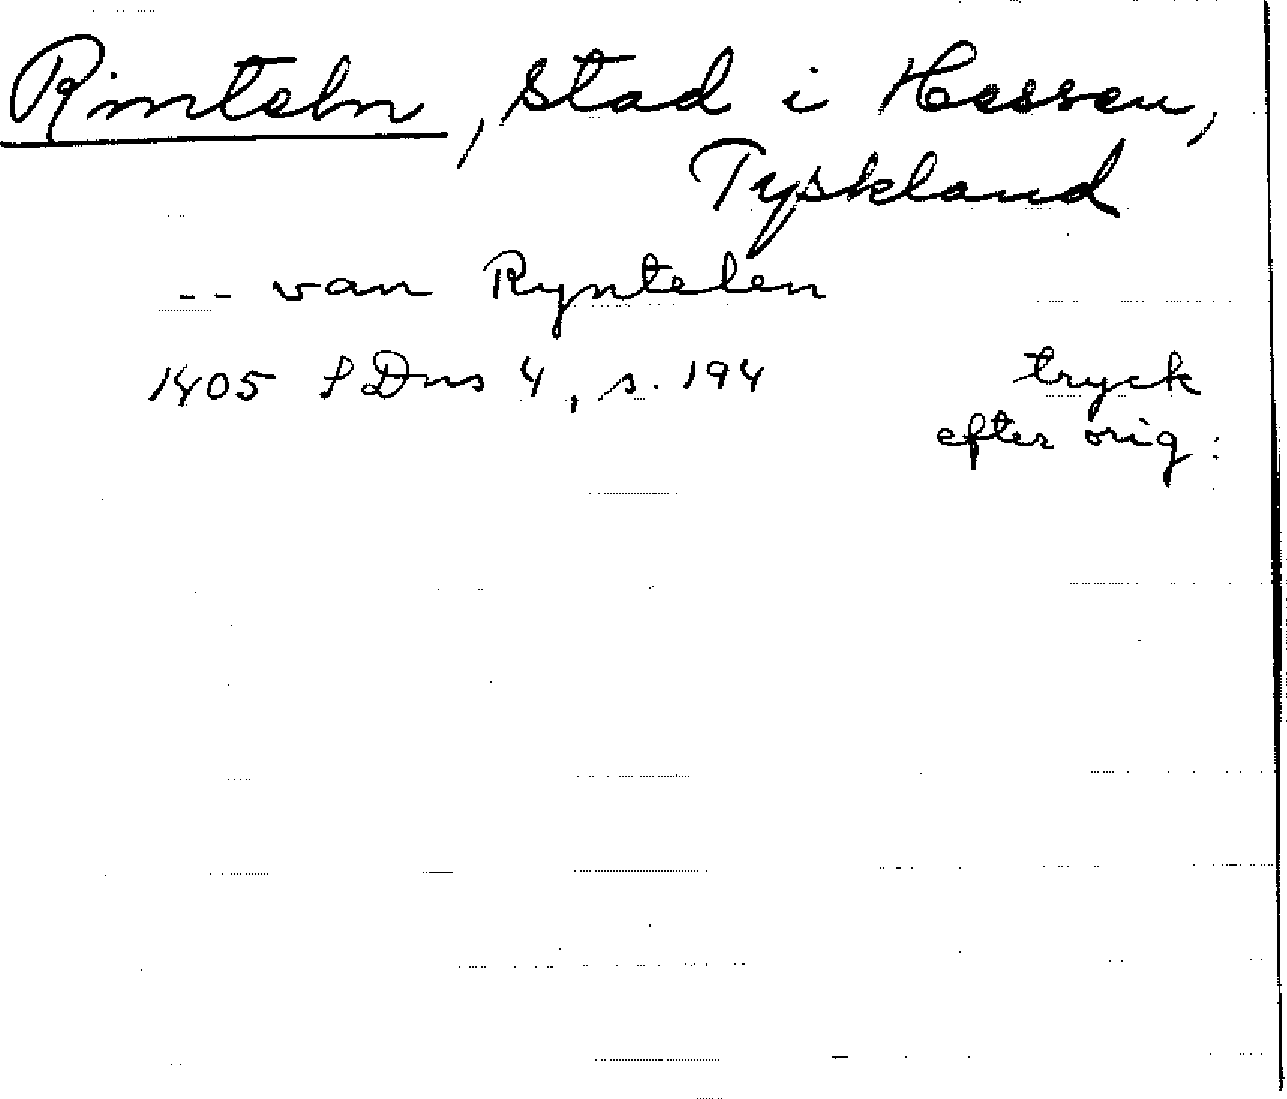 Rinteln, stad i Hessen,
Tyskland
-- van Ryntelen
1405 SDns 4, s. 194 tryck
efter orig: